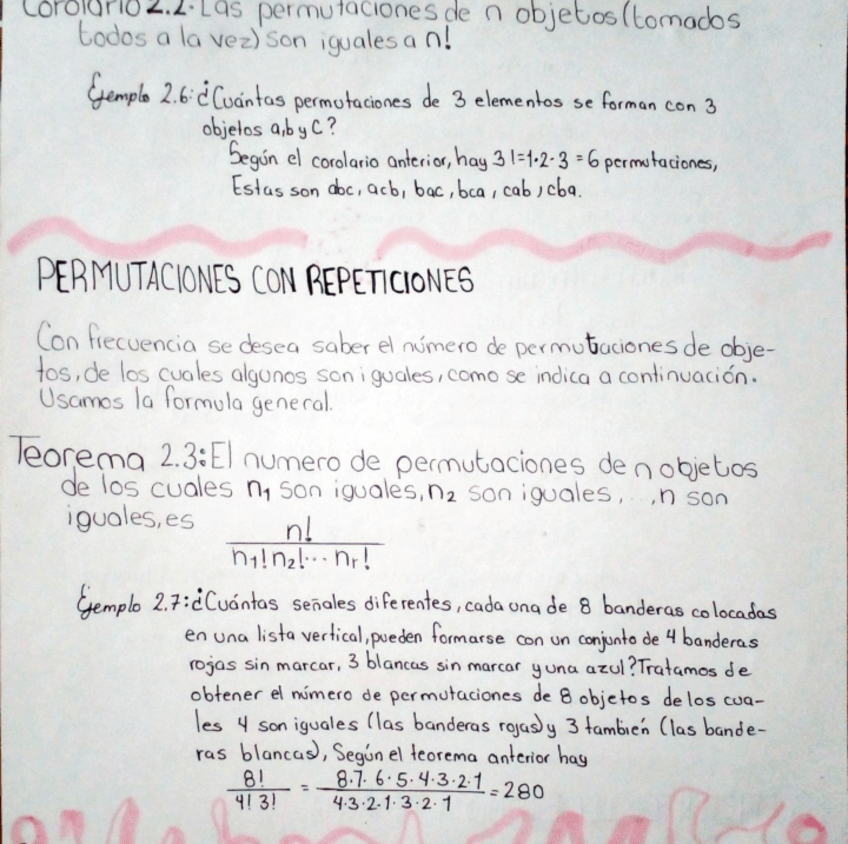 Corolario 2.2. Las permutaciones de n objetos (tomados
todos a la vez) son iguales a n!
Ejemplo 2.6: ¿Cuántas permutaciones de 3 elementos se forman con 3
objetos a, b y C?
Según el corolario anterior, hay 3! = 1·2·3 = 6 permutaciones,
Estas son abc, acb, bac, bca, cab, cba.
PERMUTACIONES CON REPETICIONES
Con frecuencia se desea saber el número de permutaciones de obje-
tos, de los cuales algunos son iguales, como se indica a continuación.
Usamos la formula general.
Teorema 2.3: El numero de permutaciones de n objetos
de los cuales n₁ son iguales, n₂ son iguales, ..., n son
iguales, es
n!
n₁! n₂! ... nᵣ!
Ejemplo 2.7: ¿Cuántas señales diferentes, cada una de 8 banderas colocadas
en una lista vertical, pueden formarse con un conjunto de 4 banderas
rojas sin marcar, 3 blancas sin marcar y una azul? Tratamos de
obtener el número de permutaciones de 8 objetos de los cua-
les 4 son iguales (las banderas rojas) y 3 también (las bande-
ras blancas), Según el teorema anterior hay
8! / 4! 3! = 8·7·6·5·4·3·2·1 / 4·3·2·1·3·2·1 = 280